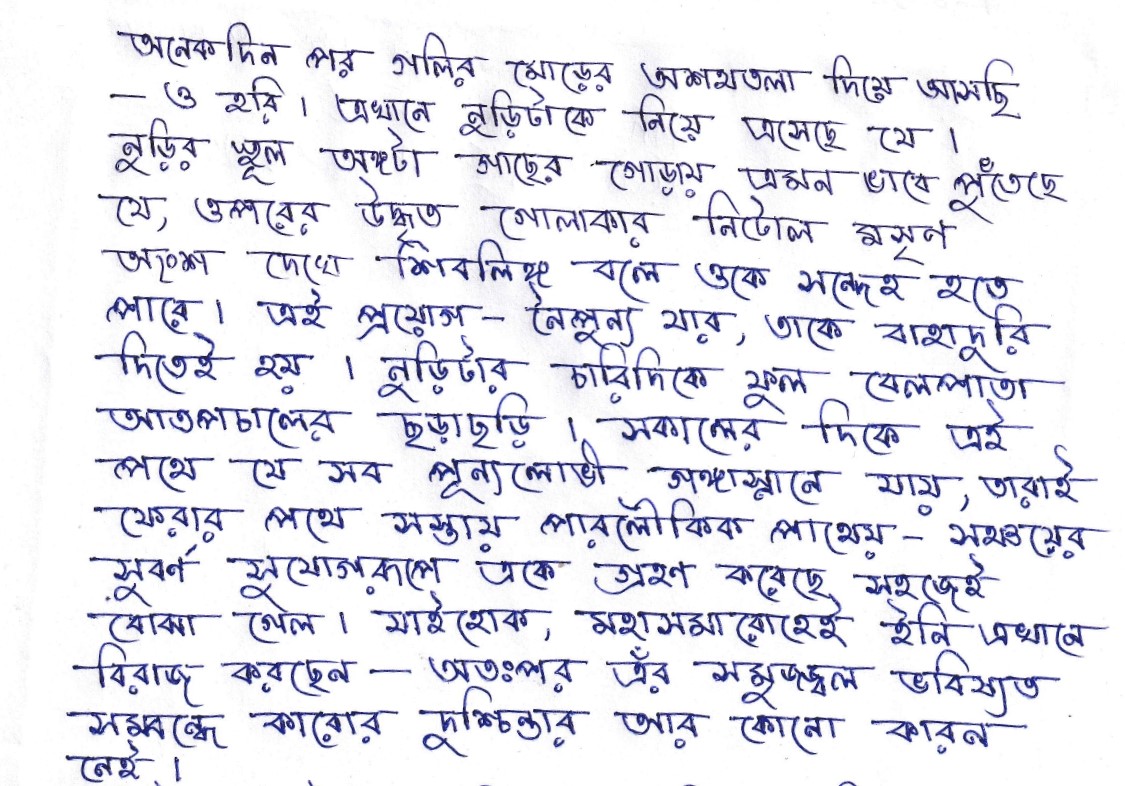 অনেকদিন পর গলির মোড়ের অশথতলা দিয়ে আসছি
— ও হরি । এখানে নুড়িটাকে নিয়ে এসেছে যে ।
নুড়ির স্থূল অঙ্গটা গাছের গোড়ায় এমন ভাবে পুঁতেছে
যে, ওপরের উদ্ধৃত গোলাকার নিটোল মসৃণ
অংশ দেখে শিবলিঙ্গ বলে ওকে সন্দেহ হতে
পারে । এই প্রয়োগ – নৈপুন্য যার, তাকে বাহাদুরি
দিতেই হয় । নুড়িটার চারিদিকে ফুল বেলপাতা
আতপচালের ছড়াছড়ি । সকালের দিকে এই
পথে যে সব পূন্যলোভী গঙ্গাস্নানে যায়, তারাই
ফেরার পথে সস্তায় পারলৌকিক পাথেয় – সঞ্চয়ের
সুবর্ণ সুযোগরূপে একে গ্রহণ করেছে সহজেই
বোঝা গেল । যাইহোক, মহাসমারোহেই ইনি এখানে
বিরাজ করছেন — অতঃপর এঁর সমুজ্জ্বল ভবিষ্যত
সম্বন্ধে কারোর দুশ্চিন্তার আর কোনো কারন
নেই ।